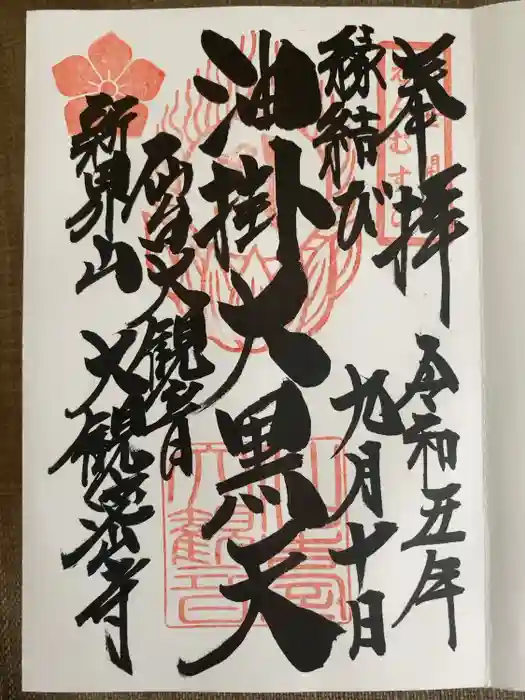 奉拝
令和五年
えんむすび
縁結び
九月十日
油掛大黒天
仙台大観音
新界山
大観密寺